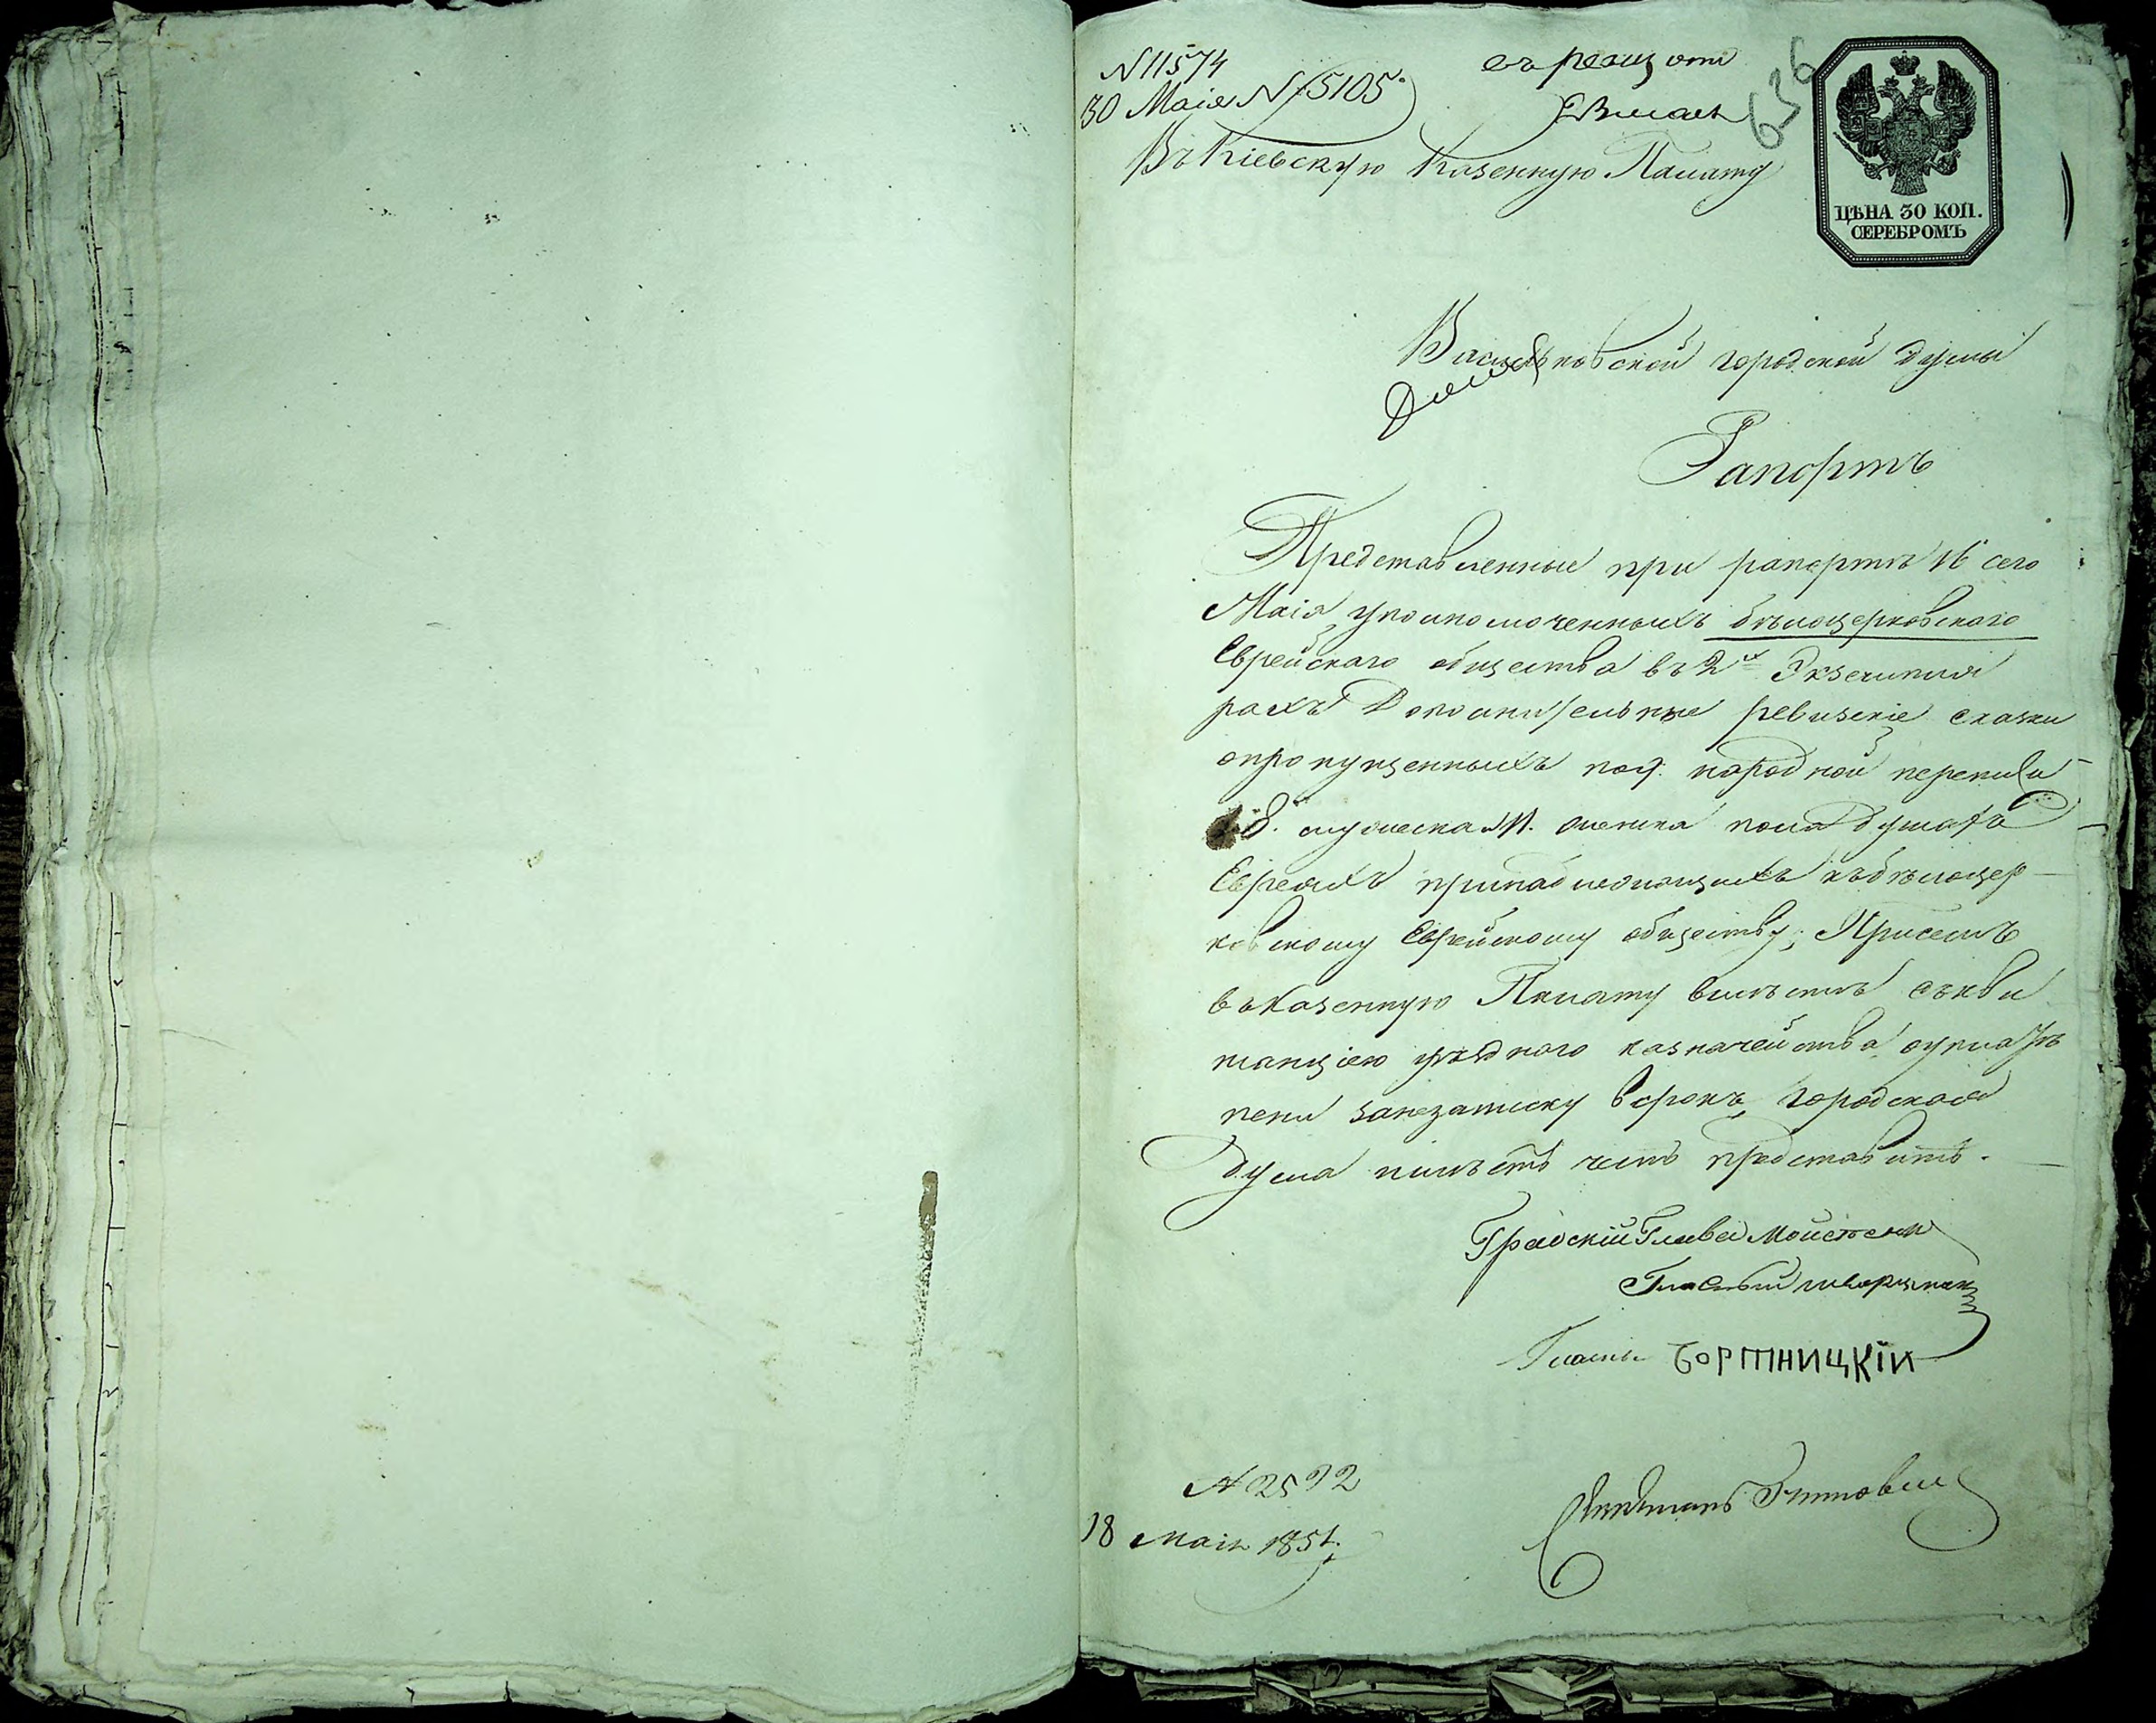 N 11574
30 Маія N 15105
636
ЦѢНА 30 КОП.
СЕРЕБРОМЪ
Въ Кіевскую Казенную Палату
Васильковской городской думы
Рапортъ
Представленные при рапортѣ 16 сего
Маія уполномоченныхъ бѣлоцерковского
Еврейскаго общества въ 2хъ Экземпля
рахъ Дополнительные ревизскіе сказки
опропущенныхъ по 9. народной переписи
8. мужеска И. женска пола душахъ
Евреяхъ принадлежащихъ къбѣлоцер
ковскому Еврейскому обществу; Присемъ
въ Казенную Палату вмѣстѣ съкви
танціею уѣзднаго казначейства оуплатѣ
пени занезаписку всрокъ, Городская
дума имѣетъ честь представить.
Градскій Глава
Гласный
Гласный БОРТНИЦКІЙ
N 2592
18 маія 1851.